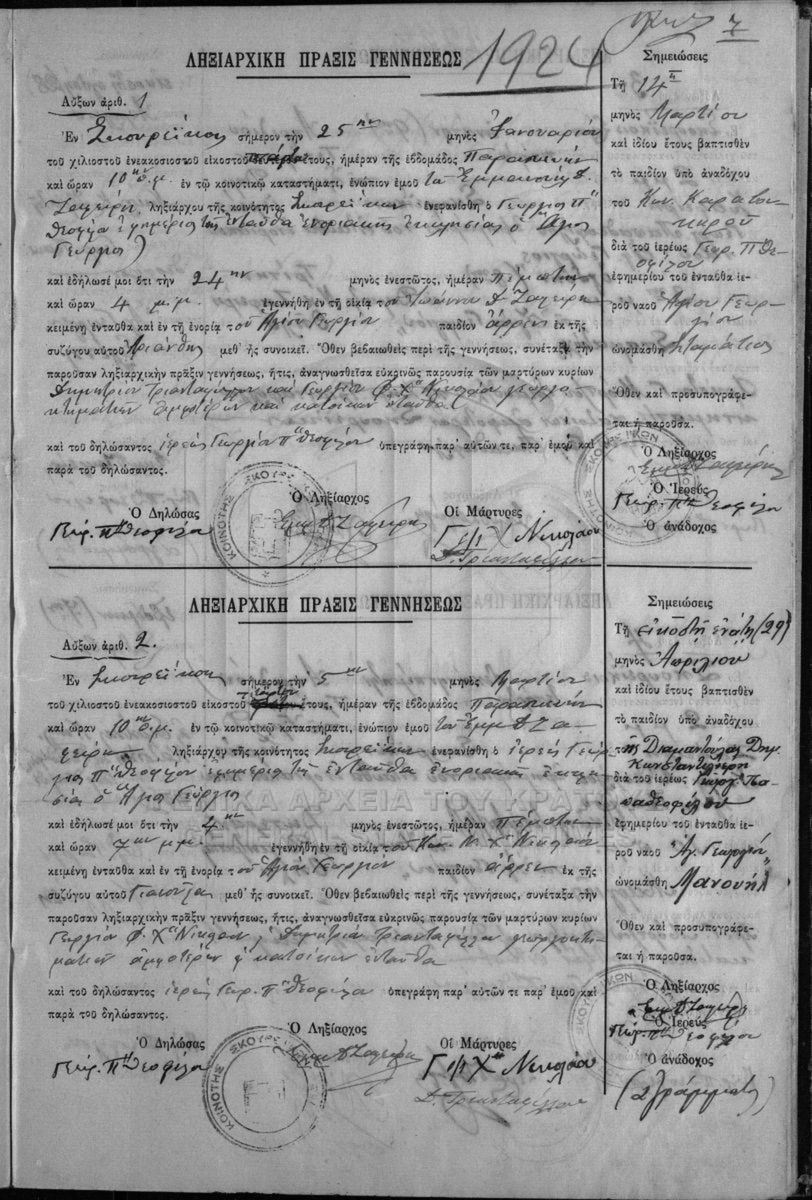 7
1924
ΛΗΞΙΑΡΧΙΚΗ ΠΡΑΞΙΣ ΓΕΝΝΗΣΕΩΣ
Αὔξων ἀριθ. 1
Ἐν Σκουρέϊκοις σήμερον τὴν 25ην μηνὸς Ἰανουαρίου
τοῦ χιλιοστοῦ ἐνεακοσιοστοῦ εἰκοστοῦ ἔτους, ἡμέραν τῆς ἑβδομάδος Παρασκευὴν
καὶ ὥραν 10ην π.μ. ἐν τῷ κοινοτικῷ καταστήματι, ἐνώπιον ἐμοῦ τοῦ Ἐμμανουὴλ Δ.
Ζαφείρη ληξιάρχου τῆς κοινότητος Σκουρεΐκων ἐνεφανίσθη ὁ Γεώργιος Π"
Θεοφίλου ἐφημέριος τῆς ἐνταῦθα ἐνοριακῆς ἐκκλησίας ὁ Ἅγιος
Γεώργιος
καὶ ἐδήλωσέ μοι ὅτι τὴν 24ην μηνὸς ἐνεστῶτος, ἡμέραν Πέμπτην
καὶ ὥραν 4 μ.μ. ἐγεννήθη ἐν τῇ οἰκίᾳ τοῦ Ἰωάννου Δ. Ζαφείρη
κειμένῃ ἐνταῦθα καὶ ἐν τῇ ἐνορίᾳ τοῦ Ἁγίου Γεωργίου παιδίον ἄρρεν ἐκ τῆς
συζύγου αὐτοῦ Ἀριάνθης μεθ' ἧς συνοικεῖ. Ὅθεν βεβαιωθεὶς περὶ τῆς γεννήσεως, συνέταξα τὴν
παροῦσαν ληξιαρχικὴν πρᾶξιν γεννήσεως, ἥτις, ἀναγνωσθεῖσα εὐκρινῶς παρουσίᾳ τῶν μαρτύρων κυρίων
Δημητρίου Τριανταφύλλου καὶ Γεωργίου Φ. Χ" Νικολάου γεωργο-
κτηματιῶν ἀμφοτέρων καὶ κατοίκων ἐνταῦθα
καὶ τοῦ δηλώσαντος ἱερέως Γεωργίου Π"Θεοφίλου ὑπεγράφη παρ' αὐτῶν τε, παρ' ἐμοῦ καὶ
παρὰ τοῦ δηλώσαντος.
Ὁ Δηλώσας
Γεώρ. Π" Θεοφίλου
Ὁ Ληξίαρχος
Ἐμμ Δ Ζαφείρης
Οἱ Μάρτυρες
Γ Φ Χ" Νικολάου
Δ. Τριανταφύλλου
Σημειώσεις
Τῇ 14η
μηνὸς Μαρτίου
καὶ ἰδίου ἔτους βαπτισθὲν
τὸ παιδίον ὑπὸ ἀναδόχου
τοῦ Κων.
διὰ τοῦ ἱερέως Γεωρ. Π Θε-
οφίλου
ἐφημερίου τοῦ ἐνταῦθα ἱε-
ροῦ ναοῦ Ἁγίου Γεωρ-
γίου
ὠνομάσθη Σταμάτιος
Ὅθεν καὶ προσυπογράφε-
ται ἡ παροῦσα.
Ὁ Ληξίαρχος
Ἐμμ Δ Ζαφείρης
Ὁ Ἱερεὺς
Γεώρ. Π" Θεοφίλου
Ὁ ἀνάδοχος
ΛΗΞΙΑΡΧΙΚΗ ΠΡΑΞΙΣ ΓΕΝΝΗΣΕΩΣ
Αὔξων ἀριθ. 2.
Ἐν Σκουρέϊκοις σήμερον τὴν 5ην μηνὸς Μαρτίου
τοῦ χιλιοστοῦ ἐνεακοσιοστοῦ εἰκοστοῦ τετάρτου ἔτους, ἡμέραν τῆς ἑβδομάδος Παρασκευὴν
καὶ ὥραν 10ην π.μ. ἐν τῷ κοινοτικῷ καταστήματι, ἐνώπιον ἐμοῦ τοῦ Ἐμμ Δ Ζα-
φείρη ληξιάρχου τῆς κοινότητος Σκουρεΐκων ἐνεφανίσθη ὁ ἱερεὺς Γεώρ-
γιος Π" Θεοφίλου ἐφημέριος τῆς ἐνταῦθα ἐνοριακῆς ἐκκλη-
σίας ὁ Ἅγιος Γεώργιος
καὶ ἐδήλωσέ μοι ὅτι τὴν 4ην μηνὸς ἐνεστῶτος, ἡμέραν Πέμπτην
καὶ ὥραν 7ην μ.μ. ἐγεννήθη ἐν τῇ οἰκίᾳ τοῦ Κων. Ν. Χ" Νικολάου
κειμένῃ ἐνταῦθα καὶ ἐν τῇ ἐνορίᾳ τοῦ Ἁγίου Γεωργίου παιδίον ἄρρεν ἐκ τῆς
συζύγου αὐτοῦ μεθ' ἧς συνοικεῖ. Ὅθεν βεβαιωθεὶς περὶ τῆς γεννήσεως, συνέταξα τὴν
παροῦσαν ληξιαρχικὴν πρᾶξιν γεννήσεως, ἥτις, ἀναγνωσθεῖσα εὐκρινῶς παρουσίᾳ τῶν μαρτύρων κυρίων
Γεωργίου Φ. Χ" Νικολάου Δημητρίου Τριανταφύλλου γεωργοκτη-
ματιῶν ἀμφοτέρων κατοίκων ἐνταῦθα
καὶ τοῦ δηλώσαντος ἱερέως Γεωρ. Π" Θεοφίλου ὑπεγράφη παρ' αὐτῶν τε παρ' ἐμοῦ καὶ
παρὰ τοῦ δηλώσαντος.
Ὁ Δηλώσας
Γεώρ. Π" Θεοφίλου
Ὁ Ληξίαρχος
Ἐμμ Δ Ζαφείρης
Οἱ Μάρτυρες
Γ Φ Χ" Νικολάου
Δ. Τριανταφύλλου
Σημειώσεις
Τῇ εἰκοστῇ ἐνάτῃ (29)
μηνὸς Ἀπριλίου
καὶ ἰδίου ἔτους βαπτισθὲν
τὸ παιδίον ὑπὸ ἀναδόχου
τῆς Διαμαντούλας Δημ.
Κωνσταντινίδη
διὰ τοῦ ἱερέως Γεωργ. Πα-
παθεοφίλου
ἐφημερίου τοῦ ἐνταῦθα ἱε-
ροῦ ναοῦ Ἁγ. Γεωργίου
ὠνομάσθη Μανουὴλ
Ὅθεν καὶ προσυπογράφε-
ται ἡ παροῦσα.
Ὁ Ληξίαρχος
Ἐμμ Δ Ζαφείρης
Ὁ Ἱερεὺς
Γεώρ. Π" Θεοφίλου
Ὁ ἀνάδοχος
(ἀγράμματος)